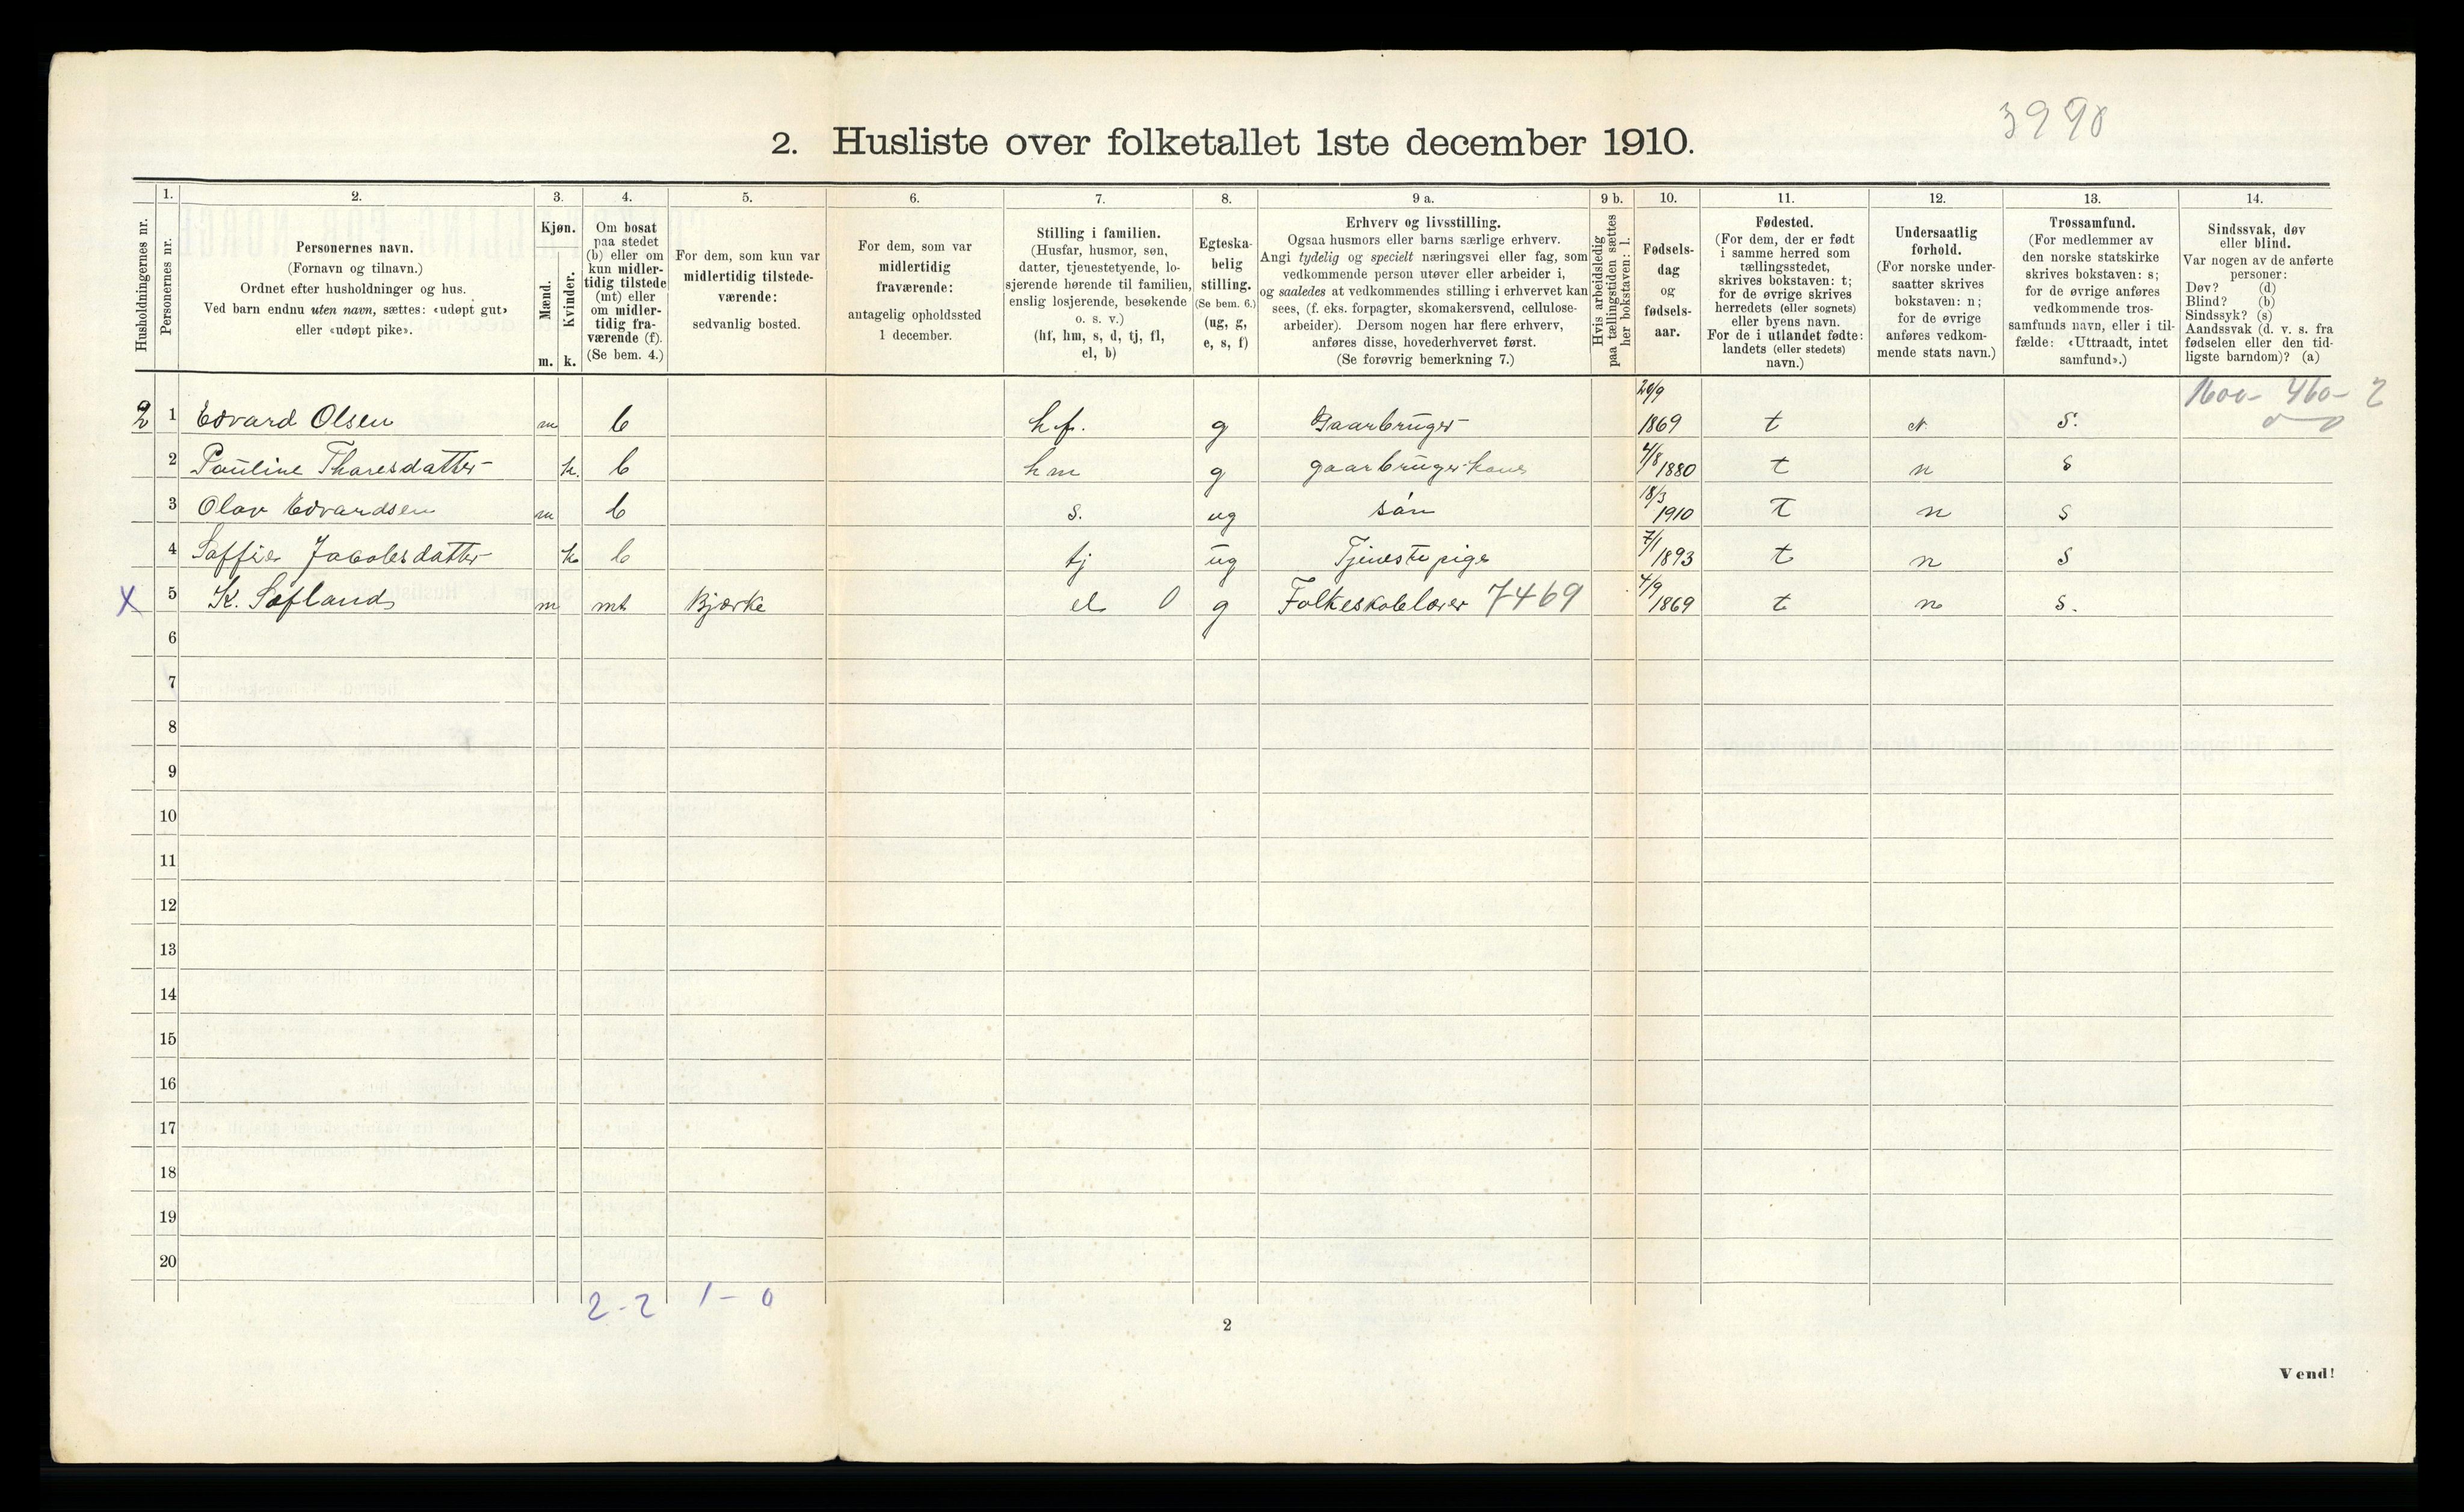 3990
2. Husliste over folketallet 1ste december 1910.
Husholdningernes nr.
1.
Personernes nr.
2.
Personernes navn.
(Fornavn og tilnavn.)
Ordnet efter husholdninger og hus.
Ved barn endnu uten navn, sættes: «udøpt gut»
eller «udøpt pike».
3.
Kjøn.
Mænd.
Kvinder.
m. k.
4.
Om bosat
paa stedet
(b) eller om
kun midler-
tidig tilstede
(mt) eller
om midler-
tidig fra-
værende (f).
(Se bem. 4.)
5.
For dem, som kun var
midlertidig tilstede-
værende:
sedvanlig bosted.
6.
For dem, som var
midlertidig
fraværende:
antagelig opholdssted
1 december.
7.
Stilling i familien.
(Husfar, husmor, søn,
datter, tjenestetyende, lo-
sjerende hørende til familien,
enslig losjerende, besøkende
o. s. v.)
(hf, hm, s, d, tj, fl,
el, b)
8.
Egteska-
belig
stilling.
(Se bem. 6.)
(ug, g,
e, s, f)
9 a.
Erhverv og livsstilling.
Ogsaa husmors eller barns særlige erhverv.
Angi tydelig og specielt næringsvei eller fag, som
vedkommende person utøver eller arbeider i,
og saaledes at vedkommendes stilling i erhvervet kan
sees, (f. eks. forpagter, skomakersvend, cellulose-
arbeider). Dersom nogen har flere erhverv,
anføres disse, hovederhvervet først.
(Se forøvrig bemerkning 7.)
9 b.
Hvis arbeidsledig
paa tællingstiden sættes
her bokstaven: l.
10.
Fødsels-
dag
og
fødsels-
aar.
11.
Fødested.
(For dem, der er født
i samme herred som
tællingsstedet,
skrives bokstaven: t;
for de øvrige skrives
herredets (eller sognets)
eller byens navn.
For de i utlandet fødte:
landets (eller stedets)
navn.)
12.
Undersaatlig
forhold.
(For norske under-
saatter skrives
bokstaven: n;
for de øvrige
anføres vedkom-
mende stats navn.)
13.
Trossamfund.
(For medlemmer av
den norske statskirke
skrives bokstaven: s;
for de øvrige anføres
vedkommende tros-
samfunds navn, eller i til-
fælde: «Uttraadt, intet
samfund».)
14.
Sindssvak, døv
eller blind.
Var nogen av de anførte
personer:
Døv? (d)
Blind? (b)
Sindssyk? (s)
Aandssvak (d. v. s. fra
fødselen eller den tid-
ligste barndom)? (a)
1600- 460- 2
0 - 0
2 1 Edvard Olsen m b hf. g Gaarbruger 20/9 1869 t N. S.
2 Pauline Tharesdatter k. b hm g gaarbruger kone 4/8 1880 t n s
3 Olav Edvardsen m b s. ug søn 18/3 1910 T n s
4 Soffie Jacobsdatter k b tj ug Tjenestepige 7/1 1893 t n s
X 5 K. Søfland m mt Bjørke el 0 g Folkeskolelærer 7469 4/9 1869 t n s.
6
7
8
9
10
11
12
13
14
15
16
17
18
19
20
2-2 1-0
2
Vend!